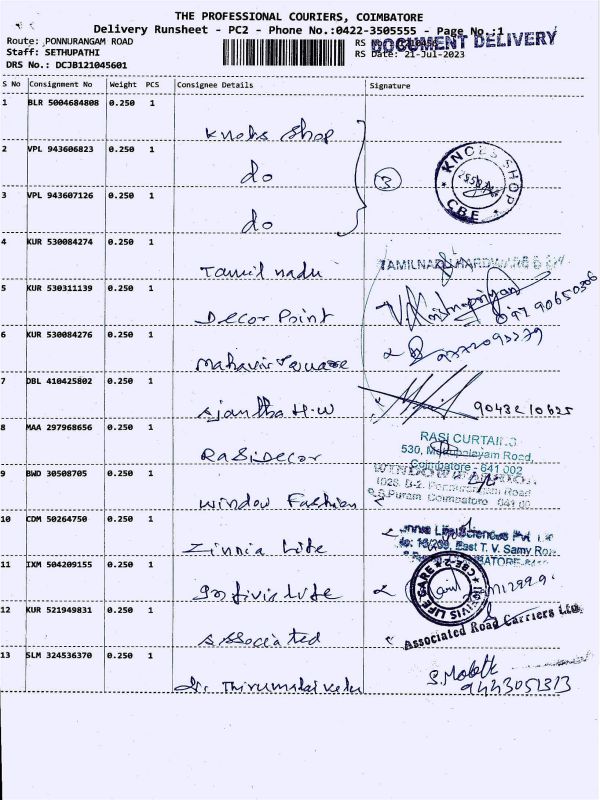 THE PROFESSIONAL COURIERS, COIMBATORE
Delivery Runsheet - PC2 - Phone No.:0422-3505555 - Page No.:1
Route: PONNURANGAM ROAD
RS No.
DOCUMENT DELIVERY
Staff: SETHUPATHI
RS Date: 21-Jul-2023
DRS No.: DCJB121045601
S No Consignment No Weight PCS Consignee Details Signature
1 BLR 5004684808 0.250 1 Knobs Shop
2 VPL 943606823 0.250 1 do
3 VPL 943607126 0.250 1 do
3
KNOBS SHOP
* CBE *
4 KUR 530084274 0.250 1 Tamil nadu
TAMILNADU HARDWARE
5 KUR 530311139 0.250 1 Decor Point
6 KUR 530084276 0.250 1 Mahavir Square
7 DBL 410425802 0.250 1 Ajantha H.W
8 MAA 297968656 0.250 1 Rasi Decor
RASI CURTAINS
530, Mettupalayam Road,
Coimbatore - 641 002
9 BWD 30508705 0.250 1 Window Fashion
WINDOW
1028, B-2, Ponnurangam Road
R.S.Puram, Coimbatore
10 CDM 50264750 0.250 1 Zinnia Life
Zinnia Life Sciences Pvt
East T. V. Samy Road
COIMBATORE
11 IXM 504209155 0.250 1
LIFE CARE * CBE-2 *
12 KUR 521949831 0.250 1 Associated
Associated Road Carriers Ltd.
13 SLM 324536370 0.250 1 Dr. Thirumalaivelu
9443051313